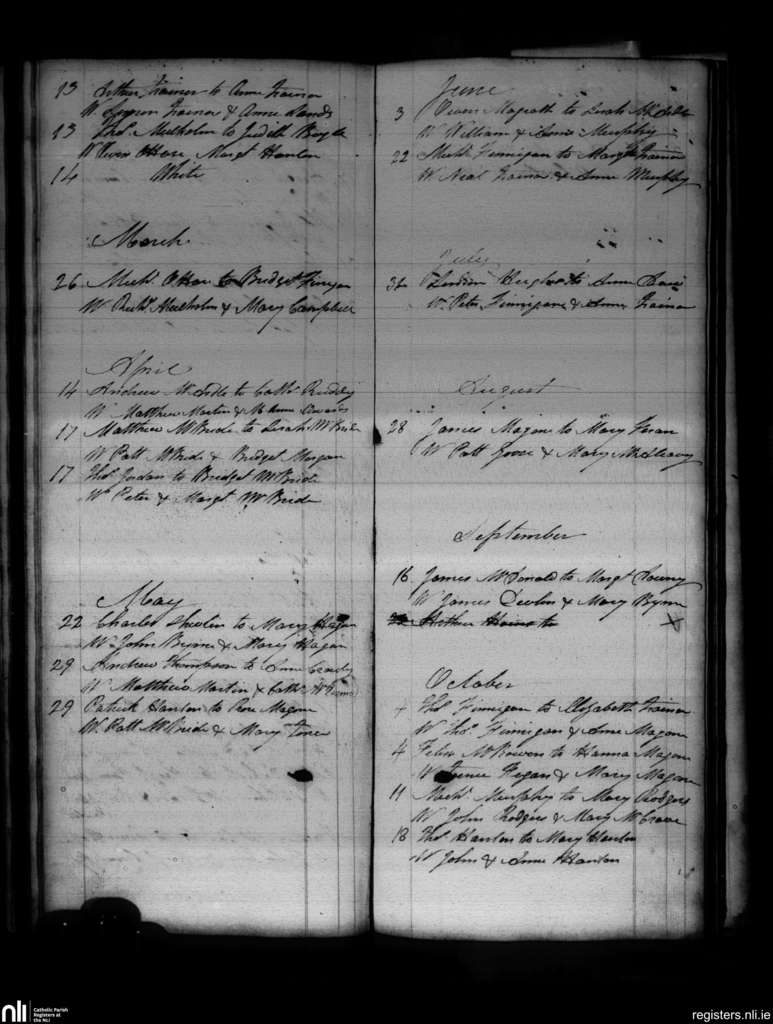 13 Arthur Trainor to Anne Trainor
W. Trainor & Anne Sands
13 Thos. Mulholm to Judith Boyle
W Owen OHare Margt Hanlon
14 White
March
26 Michl. OHare to Bridget Finegan
W Richd. Mulholm & Mary Campbell
April
14 Andrew to Cath. Ruddy
W Matthew Martin & Anne
17 Matthew McBride to Sarah McBride
W Patt McBride & Bridget Morgan
17 Thos. Jordan to Bridget McBride
W Peter & Margt McBride
May
22 Charles to Mary Hagan
W. John Byrne & Mary Hagan
29 Andrew Thompson to Anne
W Matthew Martin & Cath.
29 Patrick Hanlon to Rose Magone
W. Patt McBride & Mary Toner
June
3 Owen Magrath to Sarah
W William & Annie Murphy
22 Michl. Finnigan to Margt Trainor
W Neal Trainor & Anne Murphy
July
to Anne
W. Peter Finnigan & Anne Trainor
August
28 James Magone to Mary
W Patt & Mary McAleavy
September
16 James McDonald to Margt Lowry
W James Devlin & Mary Byrne
Arthur to X
October
4 Thos. Finnigan to Elizabeth Trainor
W Thos. Finnigan & Anne Magone
4 Felix McGowen to Hanna Magone
W Fegan & Mary Magone
11 Michl. Murphy to Mary Rodgers
W John Rodgers & Mary
18 Thos. Hanlon to Mary Hanlon
W John & Anne Hanlon
nli
Catholic Parish
Registers at
the NLI
registers.nli.ie